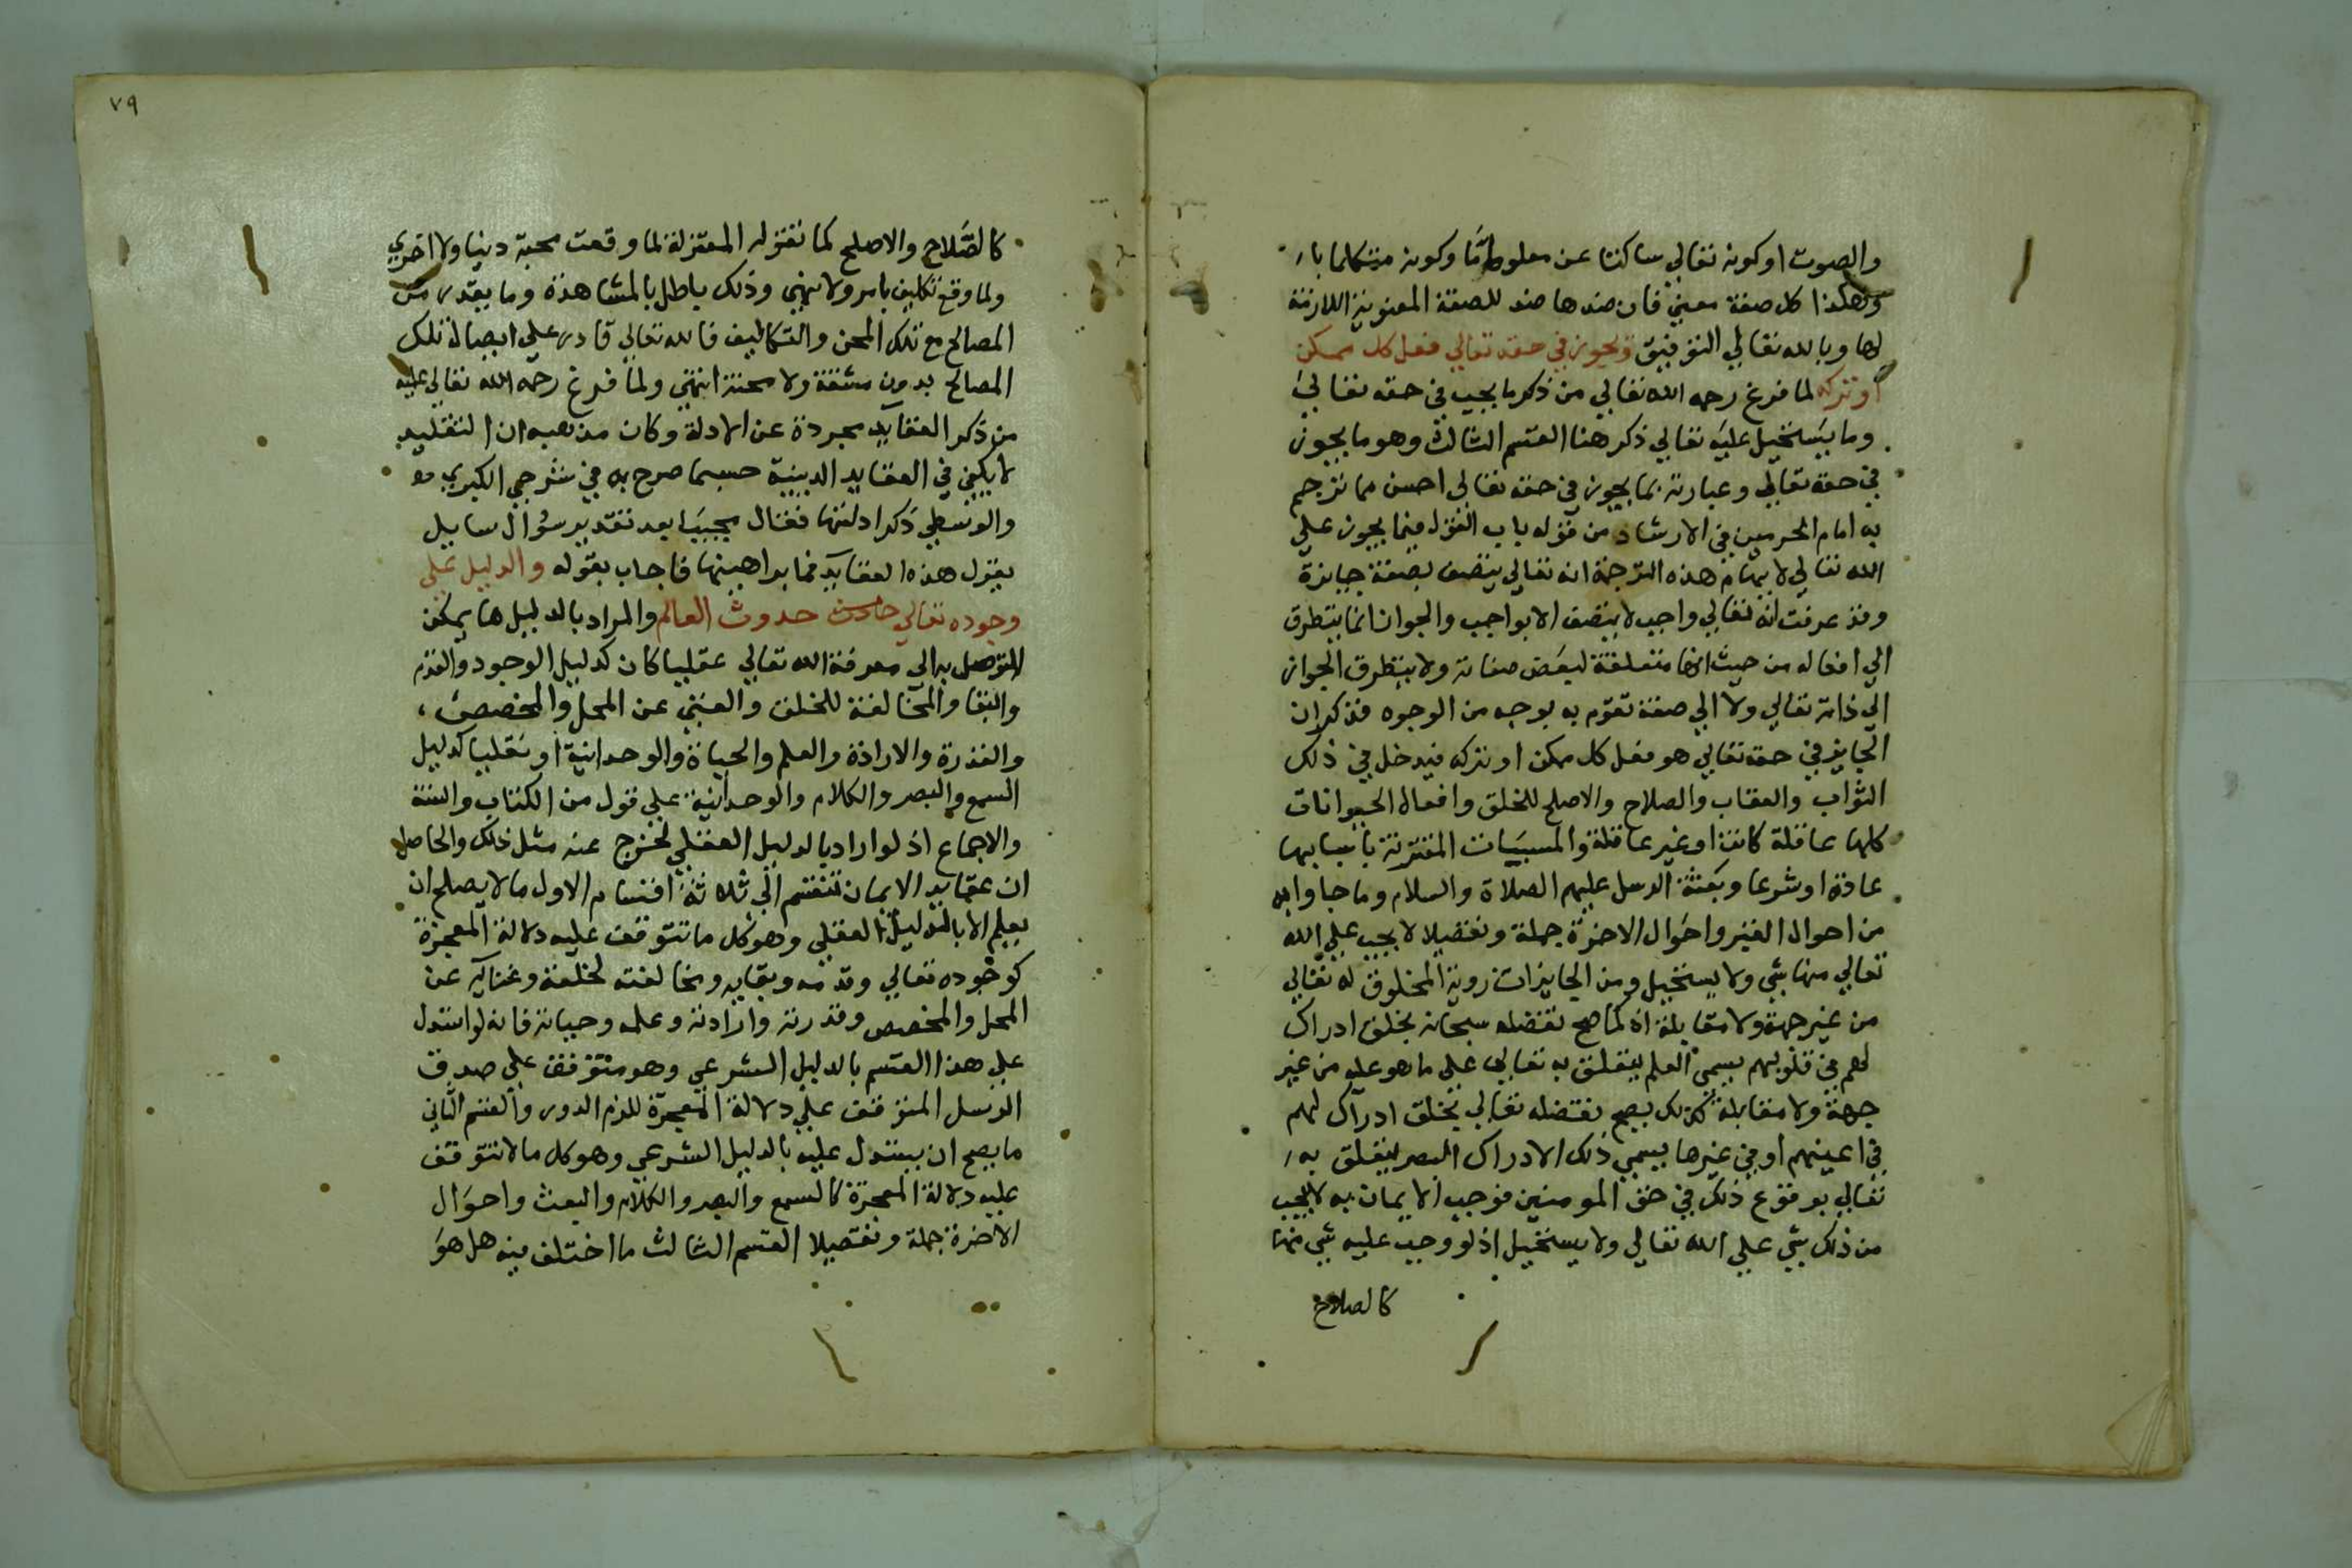 والصوت او كونه تعالي ساكتا عن معلوم ما وكونه متكلما با
وهكذا كل صفة معني فان ضدها ضد للصفة المعنوية اللازمة
لها وبالله تعالي التوفيق ويجوز في حقه تعالي فعل كل ممكن
او تركه لما فرغ رحمه الله تعالي من ذكر ما يجب في حقه تعالي
وما يستحيل عليه تعالي ذكر هنا القسم الثالث وهو ما يجوز
في حقه تعالي وعبارته بما يجوز في حقه تعالي احسن مما ترجم
به امام الحرمين في الارشاد من قوله باب القول فيما يجوز علي
الله تعالي لايهام هذه الترجمة انه تعالي يتصف بصفة جايزة
وقد عرفت انه تعالي واجب لا يتصف الا بواجب والجواز انما يتطرق
الي افعاله من حيث انها متعلقة لبعض صفاته ولا يتطرق الجواز
الي ذاته تعالي ولا الي صفة تقوم به بوجه من الوجوه فذكر ان
الجايز في حقه تعالي هو فعل كل ممكن او تركه فيدخل في ذلك
الثواب والعقاب والصلاح والاصلح للخلق وافعال الحيوانات
كلها عاقلة كانت او غير عاقلة والمسببات المقترنة باسبابها
عادة او شرعا وبعثة الرسل عليهم الصلاة والسلام وما جاوا به
من احوال القبر واحوال الاخرة جملة وتفصيلا لا يجب علي الله
تعالي منها شي ولا يستحيل ومن الجايزات روية المخلوق له تعالي
من غير جهة ولا مقابلة اذ كما صح تفضله سبحانه بخلق ادراك
لهم في قلوبهم يسمي العلم يتعلق به تعالي علي ما هو عليه من غير
جهة ولا مقابلة كذلك يصح تفضله تعالي بخلق ادراك لهم
في اعينهم او في غيرها يسمي ذلك الادراك البصر ليتعلق به
تعالي بوقوع ذلك في حق المومنين فوجب الايمان به لا يجب
من ذلك شي علي الله تعالي ولا يستحيل اذ لو وجب عليه شي منها
كالصلاح
٧٩
كالصلاح والاصلح كما تقوله المعتزلة لما وقعت محنة دنيا ولا اخري
ولما وقع تكليف بامر ولا نهي وذلك باطل بالمشاهدة وما يقدر من
المصالح مع تلك المحن والتكاليف فالله تعالي قادر علي ايصال تلك
المصالح بدون مشقة ولا محنة انتهي ولما فرغ رحمه الله تعالي عليه
من ذكر العقايد مجردة عن الادلة وكان مذهبه ان التقليد
لا يكفي في العقايد الدينية حسبما صرح به في شرحي الكبري
والوسطي ذكر ادلتها فقال مجيبا بعد تقدير سوال سايل
يقول هذه العقايد فما براهينها فاجاب بقوله والدليل علي
وجوده تعالي حدوث العالم والمراد بالدليل ما يمكن
التوصل به الي معرفة الله تعالي عقليا كان كدليل الوجود والقدم
والبقا والمخالفة للخلق والغني عن المحل والمخصص،
والقدرة والارادة والعلم والحياة والوحدانية او نقليا كدليل
السمع والبصر والكلام والوحدانية علي قول من الكتاب والسنة
والاجماع اذ لو اراد بالدليل العقلي لخرج عنه مثل ذلك والحاصل
ان عقايد الايمان تنقسم الي ثلاثة اقسام الاول ما لا يصلح ان
يعلم الا بالدليل العقلي وهو كل ما تتوقف عليه دلالة المعجزة
كوجوده تعالي وقدمه وبقايه ومخالفته لخلقه وغنايه عن
المحل والمخصص وقدرته وارادته وعلمه وحياته فانه لو استدل
علي هذا القسم بالدليل الشرعي وهو متوقف علي صدق
الرسل المتوقف علي دلالة المعجزة للزم الدور والقسم الثاني
ما يصح ان يستدل عليه بالدليل الشرعي وهو كل ما لا تتوقف
عليه دلالة المعجزة كالسمع والبصر والكلام والبعث واحوال
الاخرة جملة وتفصيلا القسم الثالث ما اختلف فيه هل هو